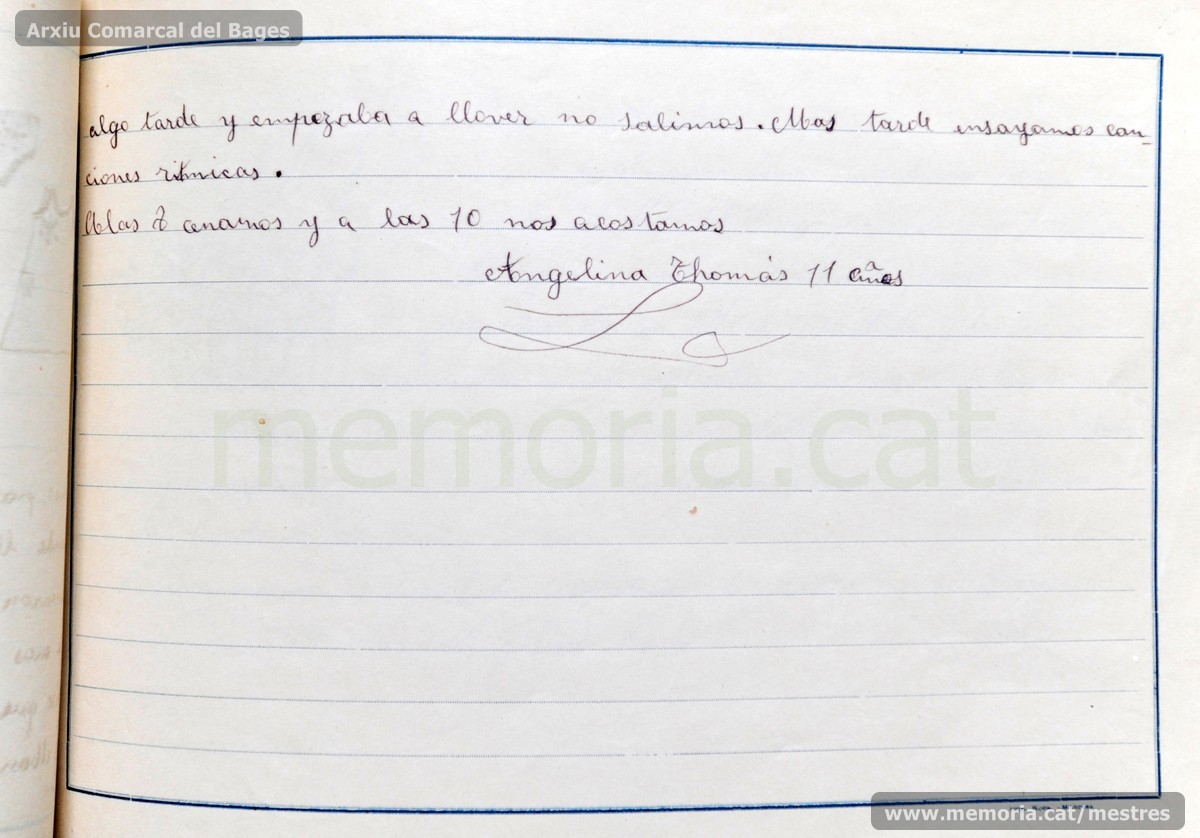 Arxiu Comarcal del Bages
algo tarde y empezaba a llover no salimos. Mas tarde ensayamos can-
ciones ritmicas.
A las 7 cenamos y a las 10 nos acostamos
Angelina Thomás 11 años
memoria.cat
www.memoria.cat/mestres